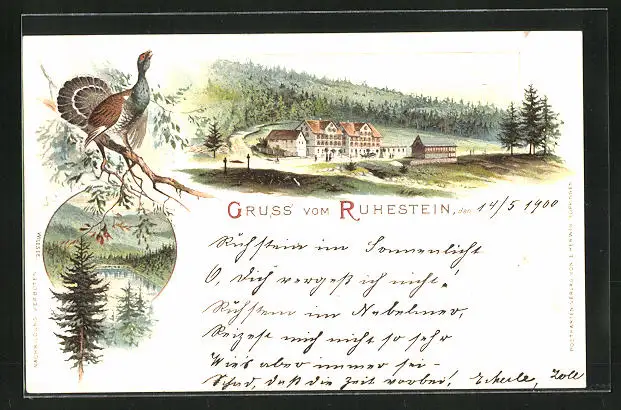 GRUSS VOM RUHESTEIN, den 14/5 1900
Ruhstein im Sonnenlicht
O, Dich vergeß ich nicht!
Ruhstein im Nebelmeer,
Reizest mich nicht so sehr
Wie's aber immer sei-
Schad, daß die Zeit vorbei!
WILDSEE
NACHBILDUNG VERBOTEN
POSTKARTEN-VERLAG VON TÜBINGEN